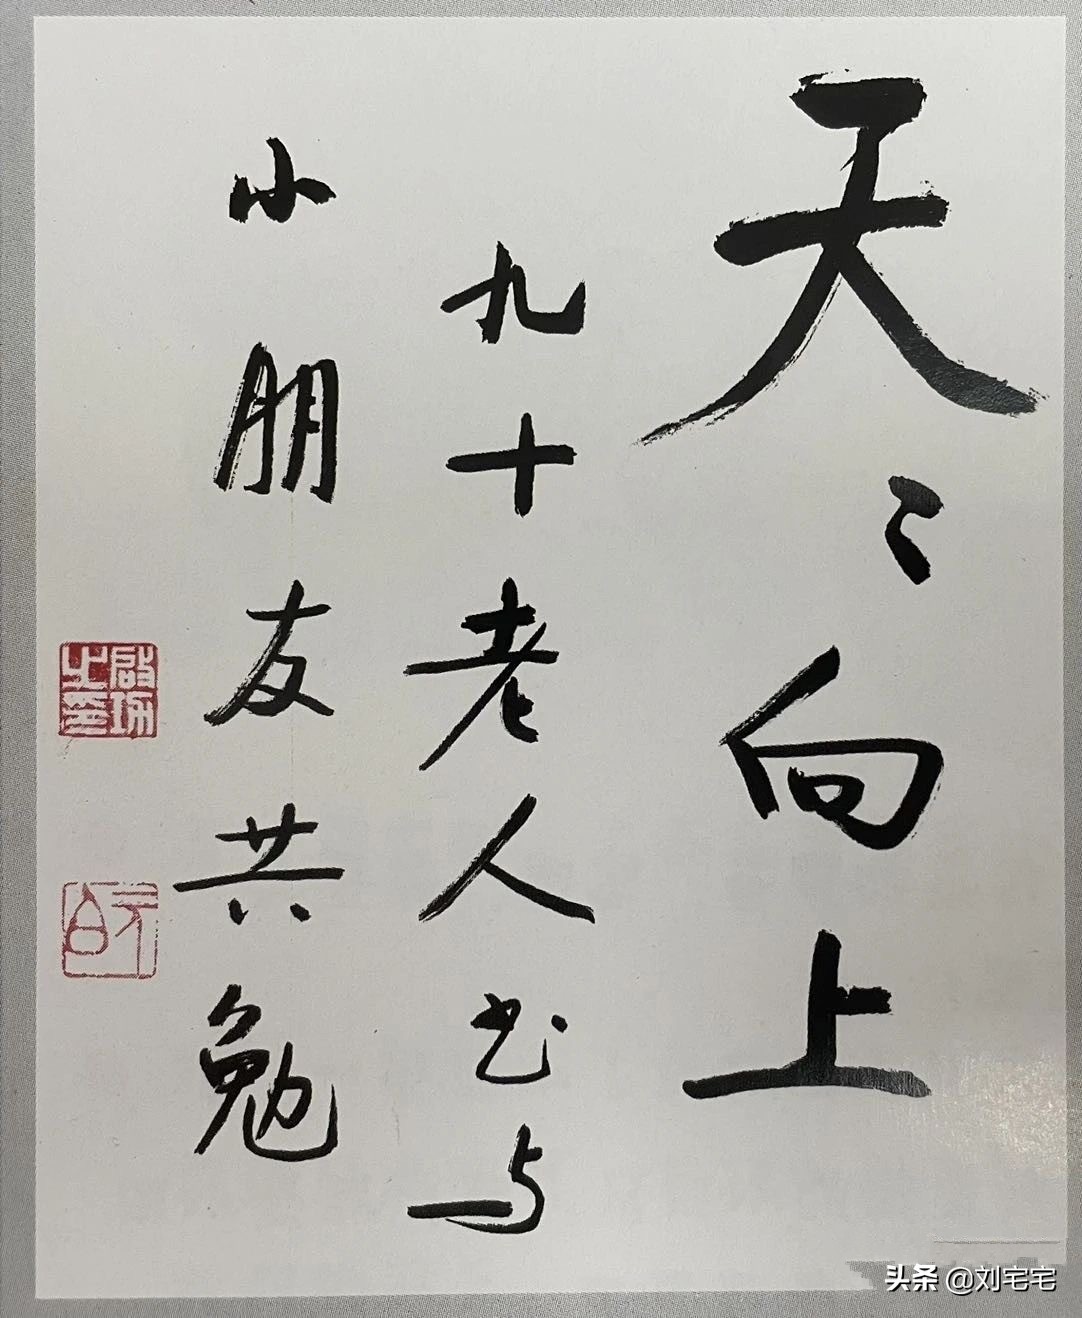 天〻向上
九十老人书与
小朋友共勉
啟功之鉨
元白
头条 @刘宅宅